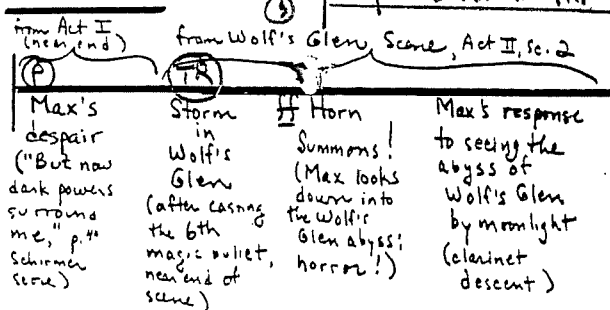 from Act I
(near end)
from Wolf's Glen Scene, Act II, sc. 2
P
TR
Max's
despair
("But now
dark powers
surround
me," p. 40
Schirmer
score)
Storm
in
Wolf's
Glen
(after casting
the 6th
magic bullet,
near end of
scene)
ff Horn
Summons!
(Max looks
down into
the Wolf's
Glen abyss;
horror!)
Max's response
to seeing the
abyss of
Wolf's Glen
by moonlight
(clarinet
descent)